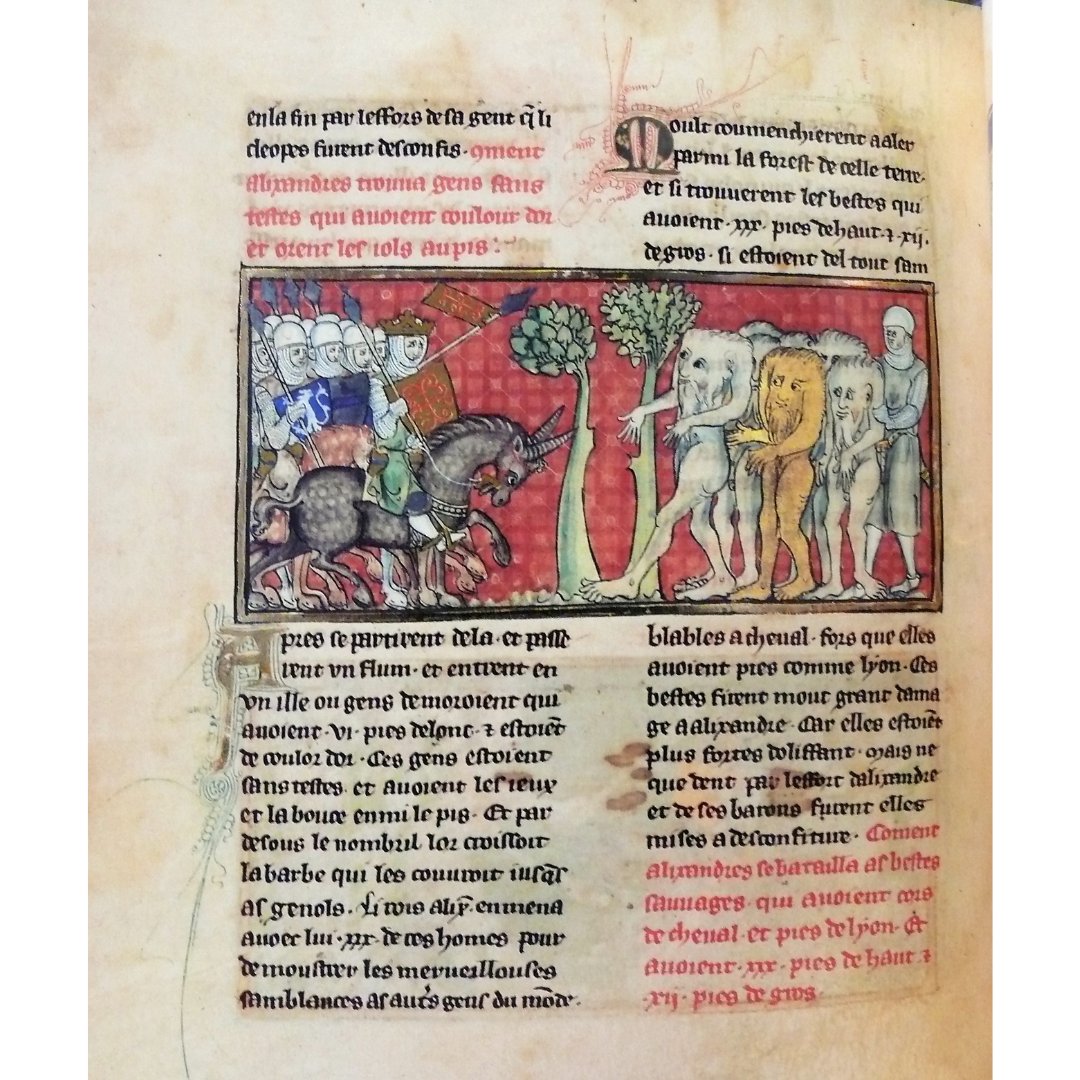 en la fin par leffors de sa gent q̃ li
cleopes furent desconfis. qment
alixandres trouua gens sans
testes qui auoient coulour dor
et orent les iols au pis.
Apres se partirent de la. et passe
rent vn flum. et entrent en
vn ille ou gens demoroient qui
auoient .vi. pies de lonc. ⁊ estoiẽt
de coulor dor. Ces gens estoient
sans testes. et auoient les ieux
et la bouce enmi le pis. Et par
desous le nombril lor croissoit
la barbe qui les couuroit iusq̃s
as genols. Li rois alix̃. enmena
auoec lui .xxx. de ces homes pour
demoustrer les meruellouses
samblances as aut̾s gens du mõde.
Moult coumenchierent a aler
parmi la forest de celle terre.
et si trouuerent les bestes qui
auoient .xxx. pies de haut. ⁊ .xij.
de gros. si estoient del tout sam
blables a cheual. fors que elles
auoient pies comme lyon. Ces
bestes firent mout grant dama
ge a alixandre. Car elles estoiẽt
plus fortes dolifant. mais ne
que dent par leffort dalixandre
et de ses barons furent elles
mises a desconfiture. Coment
alixandres se batailla as bestes
sauuages. qui auoient cors
de cheual. et pies de lyon. Et
auoient .xxx. pies de haut ⁊
.xij. pies de gros.